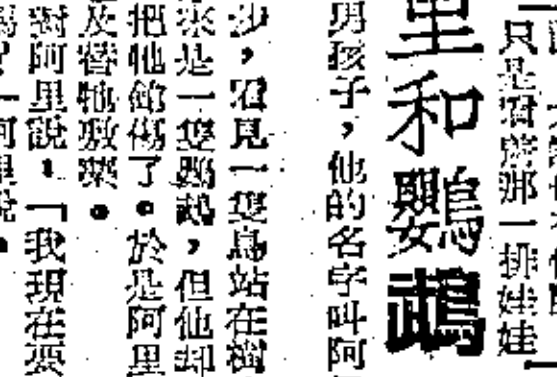 只是看着那一排娃娃
里和鸚鵡
男孩子，他的名字叫阿
沙，看見一隻鳥站在樹
來是一隻鸚鵡，但他却
把牠 傷了。於是阿里
及替牠敷藥。
對阿里說：「我現在要